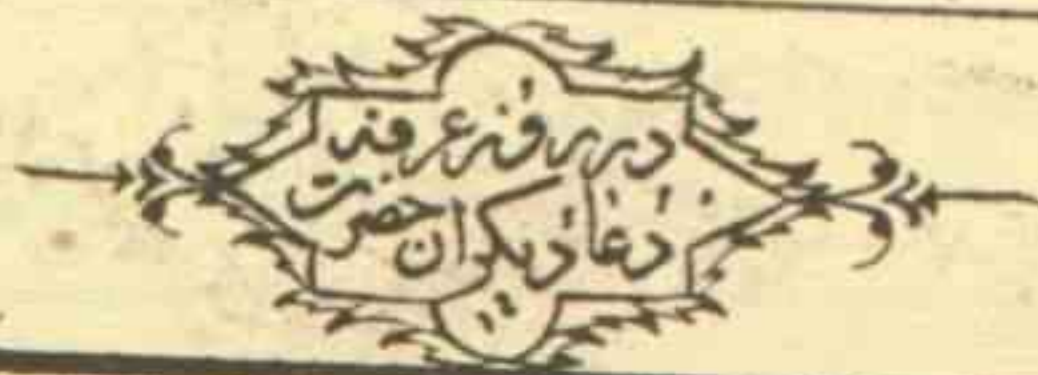 در روز عرفه
دعاء دیکر ان حضرت
١٤